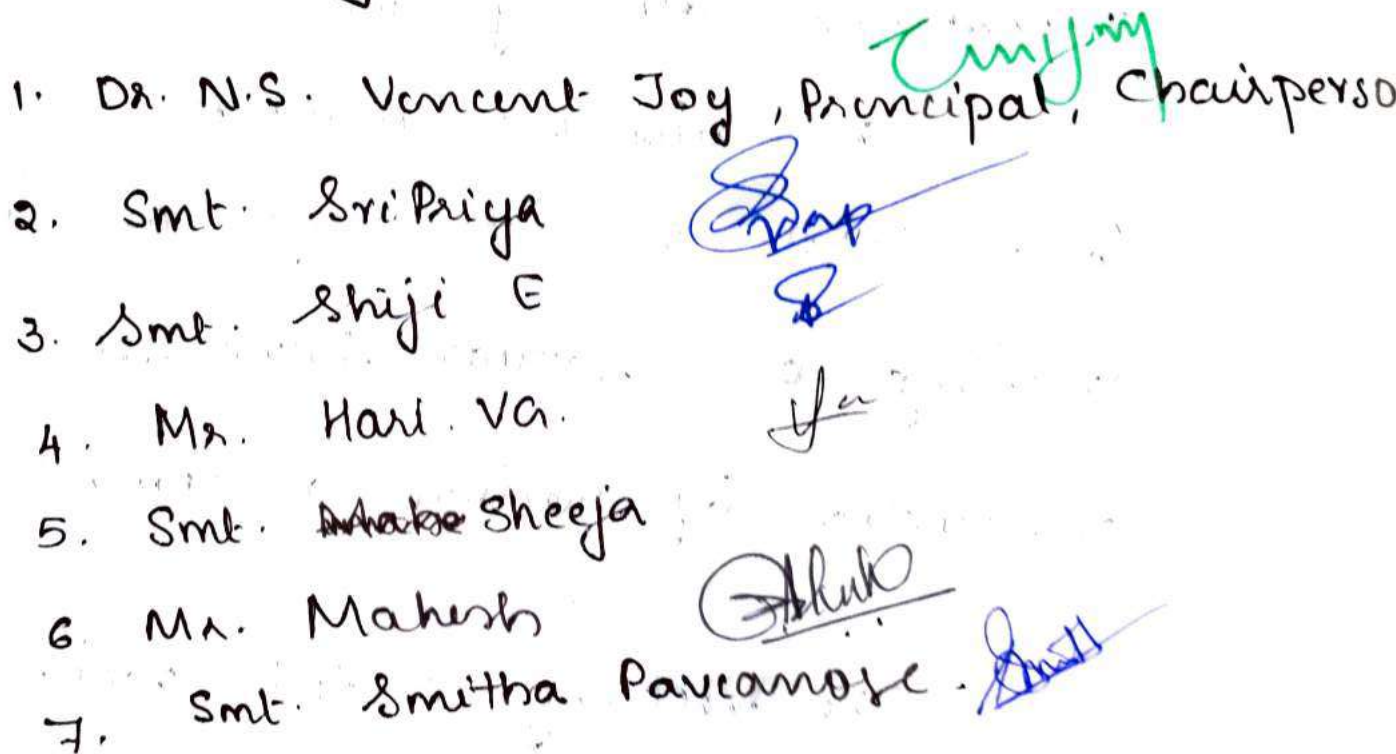 1. Dr. N.S. Vencent Joy, Principal, Chairperso
2. Smt. SriPriya
3. Smt. Shiji E
4. Mr. Hari. VG.
5. Smt. Sheeja
6 Mr. Mahesh
7. Smt. Smitha